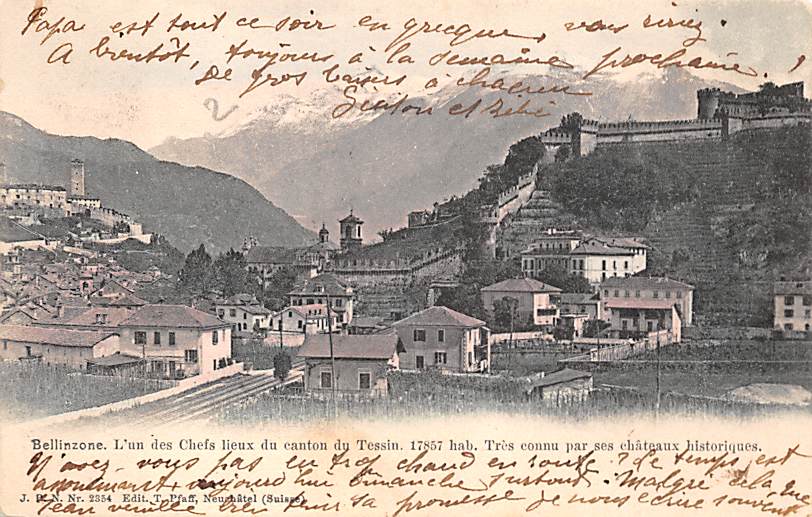 Papa est tout ce soir en grecque, vous riiriez.
A bientôt, toujours à la semaine prochaine,
De gros baisers à chacun
et Bébé
2
Bellinzone. L'un des Chefs lieux du canton du Tessin. 17857 hab. Très connu par ses châteaux historiques.
N'avez-vous pas eu trop chaud en route? le temps est
aujourd'hui dimanche surtout. Malgré cela que
J. P. N. Nr. 2354 Edit. T. Pfaff, Neuchâtel (Suisse)
Jean veuille bien tenir sa promesse de nous écrire souvent